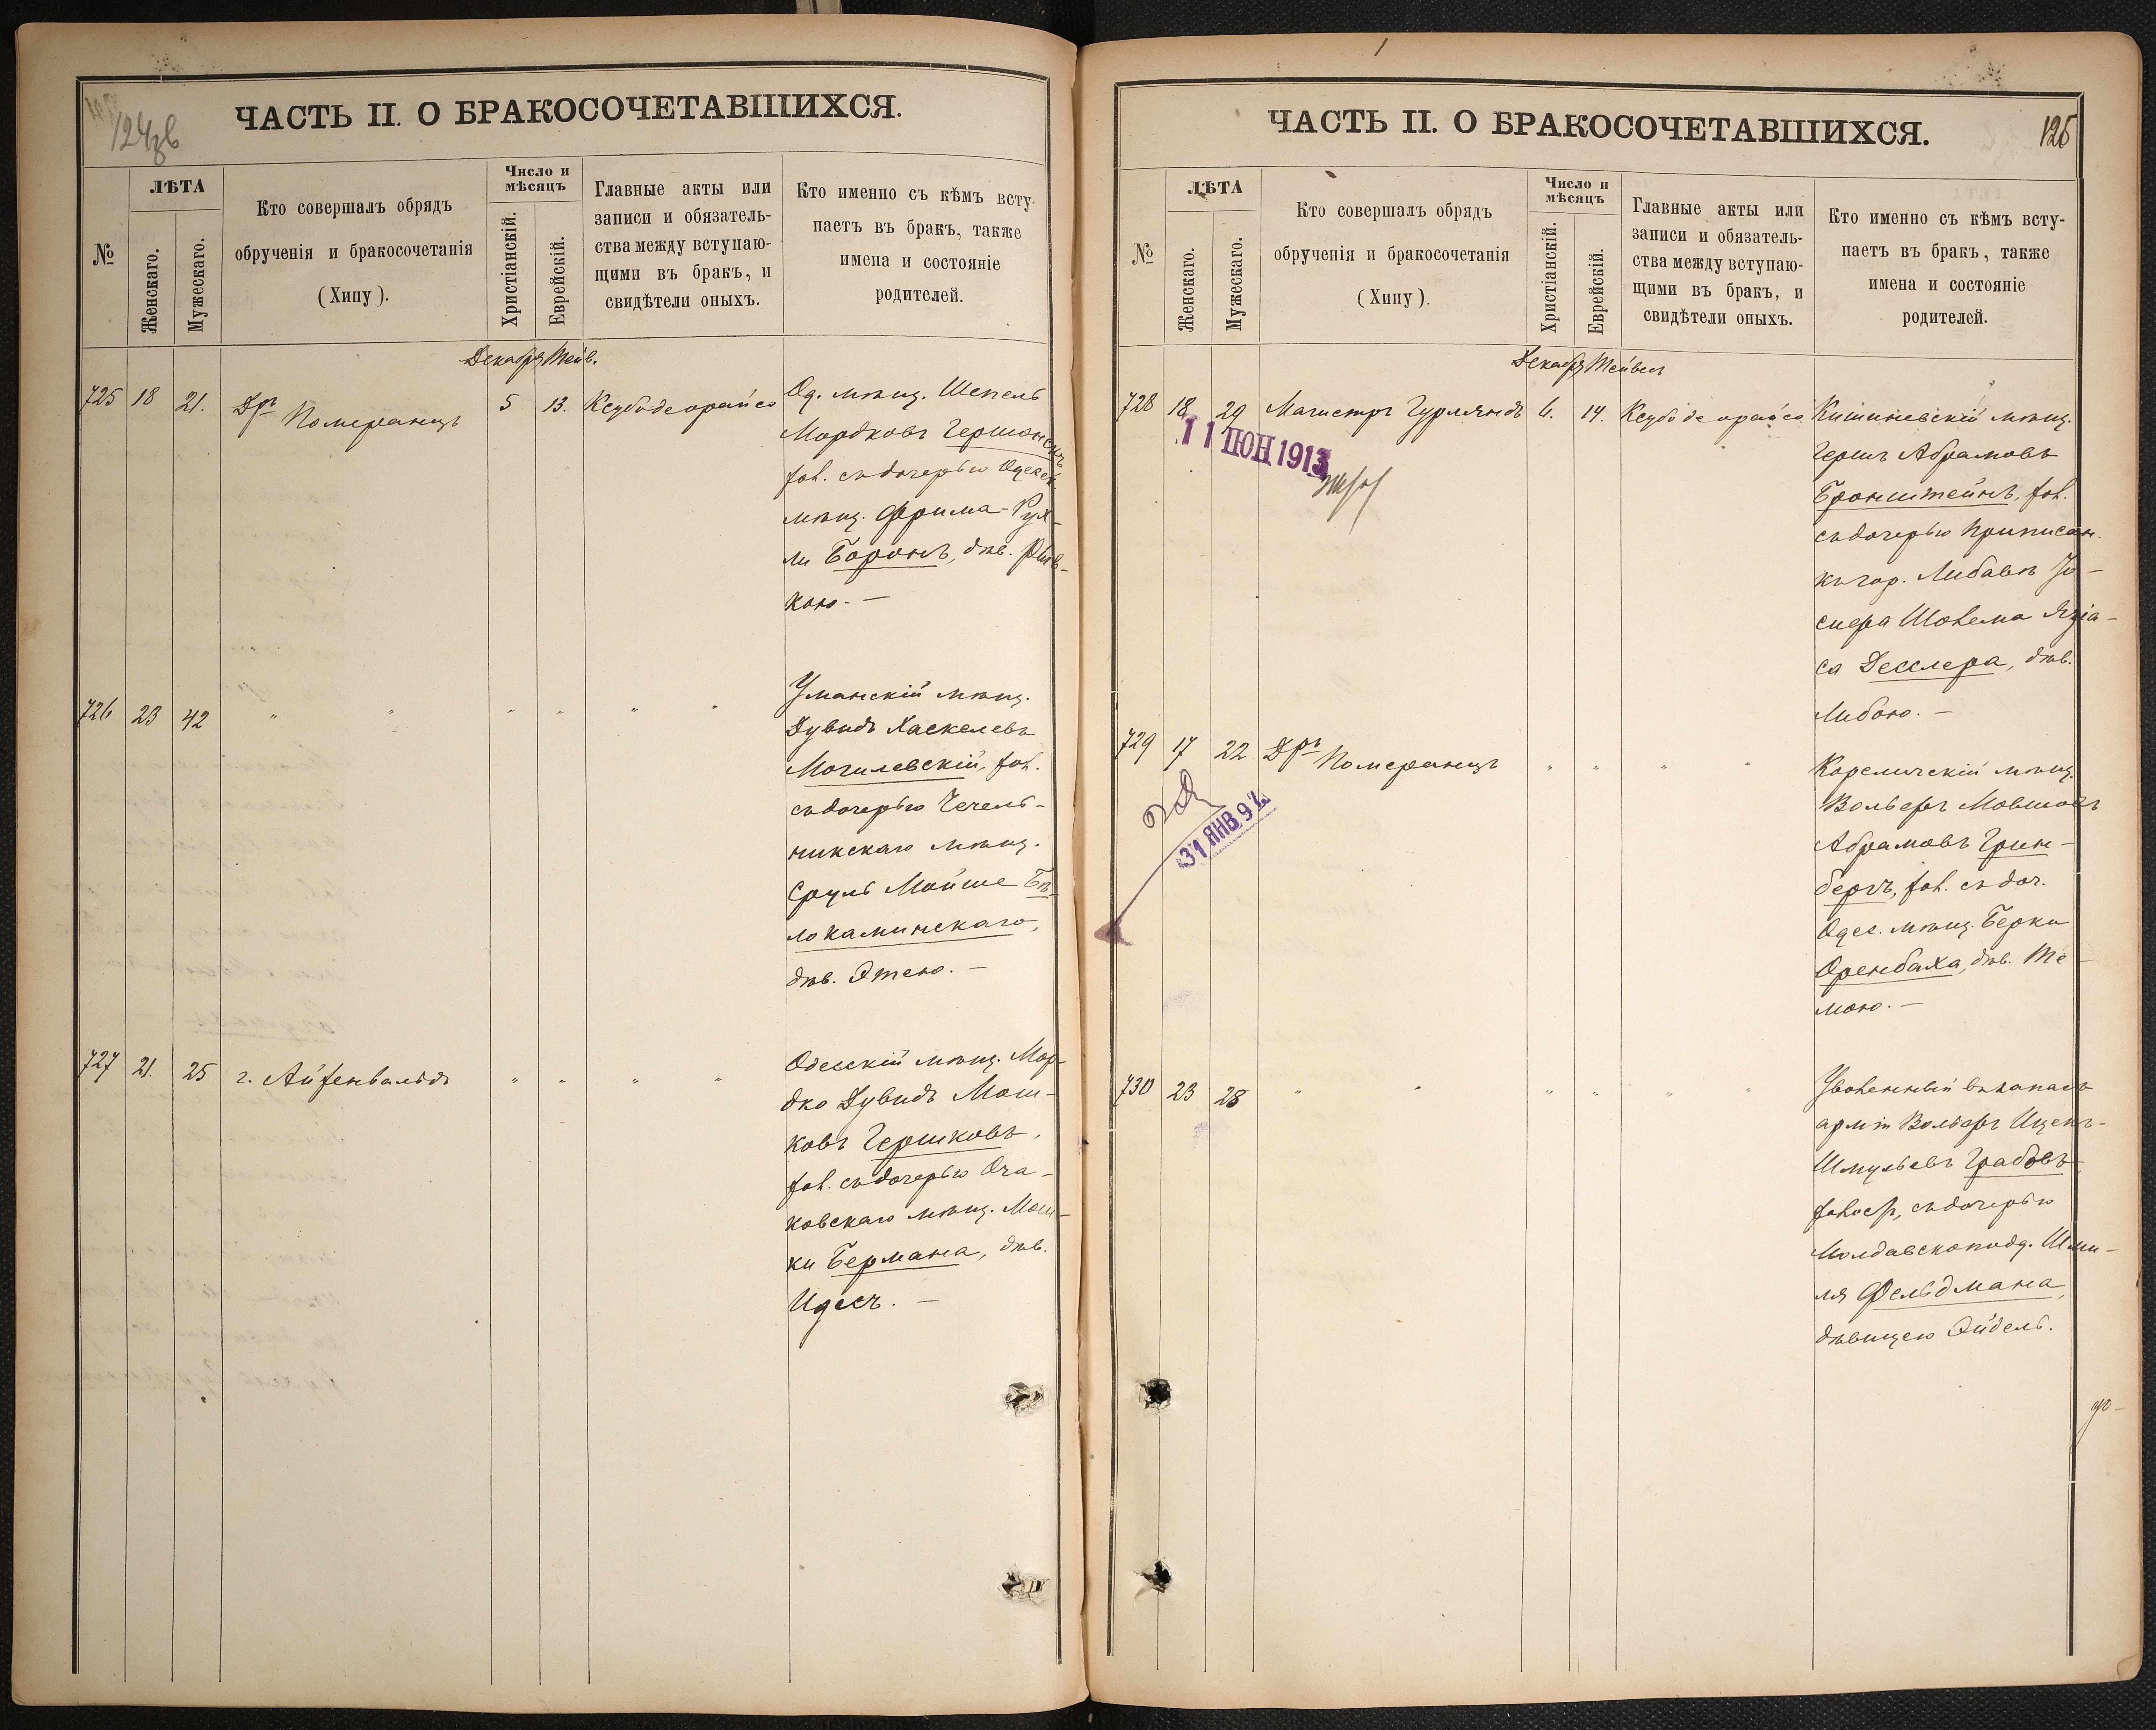 124об
ЧАСТЬ II. О БРАКОСОЧЕТАВШИХСЯ.
№
ЛѢТА
Женскаго.
Мужескаго.
Кто совершалъ обрядъ
обрученія и бракосочетанія
(Хипу).
Число и
мѣсяцъ
Христіанскій.
Еврейскій.
Главные акты или
записи и обязатель-
ства между вступаю-
щими въ бракъ, и
свидѣтели оныхъ.
Кто именно съ кѣмъ всту-
паетъ въ бракъ, также
имена и состояніе
родителей.
Декабря Тейв.
725 18 21. Дръ Померанцъ 5 13. Ксубо деорайсо
Од. мѣщ. Шепель
Мордковъ
хол. съ дочерью Одесск.
мѣщ. Фрима-Рух-
ли Боронъ, дѣв. Рыв-
кою. —
726 23 42 " " " " " "
Уманскій мѣщ.
Дувидъ Хаскелевъ
Могилевскій, хол.
съ дочерью Чечель-
никскаго мѣщ.
Сруль Мойше Бѣ-
локаминскаго,
дѣв. Этею. —
727 21. 25 г. Айзенвальдъ " " " "
Одесскій мѣщ. Мор-
дко Дувидъ Мош-
ковъ Гершковъ,
хол. съ дочерью Оча-
ковскаго мѣщ. Мош-
ки Бермана, дѣв.
Идесъ. —
125
ЧАСТЬ II. О БРАКОСОЧЕТАВШИХСЯ.
№
ЛѢТА
Женскаго.
Мужескаго.
Кто совершалъ обрядъ
обрученія и бракосочетанія
(Хипу).
Число и
мѣсяцъ
Христіанскій.
Еврейскій.
Главные акты или
записи и обязатель-
ства между вступаю-
щими въ бракъ, и
свидѣтели оныхъ.
Кто именно съ кѣмъ всту-
паетъ въ бракъ, также
имена и состояніе
родителей.
Декабря Тейвеп
728 18 29 Магистръ Гурляндъ 6. 14. Ксубо де орайсо
11 ІЮН 1913
Кишиневскій мѣщ.
Гершъ Абрамовъ
Бронштейнъ, хол.
съ дочерью приписан.
къ гор. Либавѣ Ю-
Шолема
са Десслера, дѣв.
Либою. —
729 17 22 Дръ Померанцъ " " " "
31 ЯНВ. 9
Кореличскій мѣщ.
Вольфъ Мовшовъ
Абрамовъ Грин-
бергъ, хол. съ доч.
Одес. мѣщ. Берки
Оренбаха, дѣв. Те-
мою. —
730 23 28 " " " " " "
Уволенный въ запасъ
арміи Вольфъ Ицекъ-
Шмульевъ Грабовъ
холост, съ дочерью
Молдавскопод. Шми-
ля Фельдмана,
дѣвицею Эйдель.